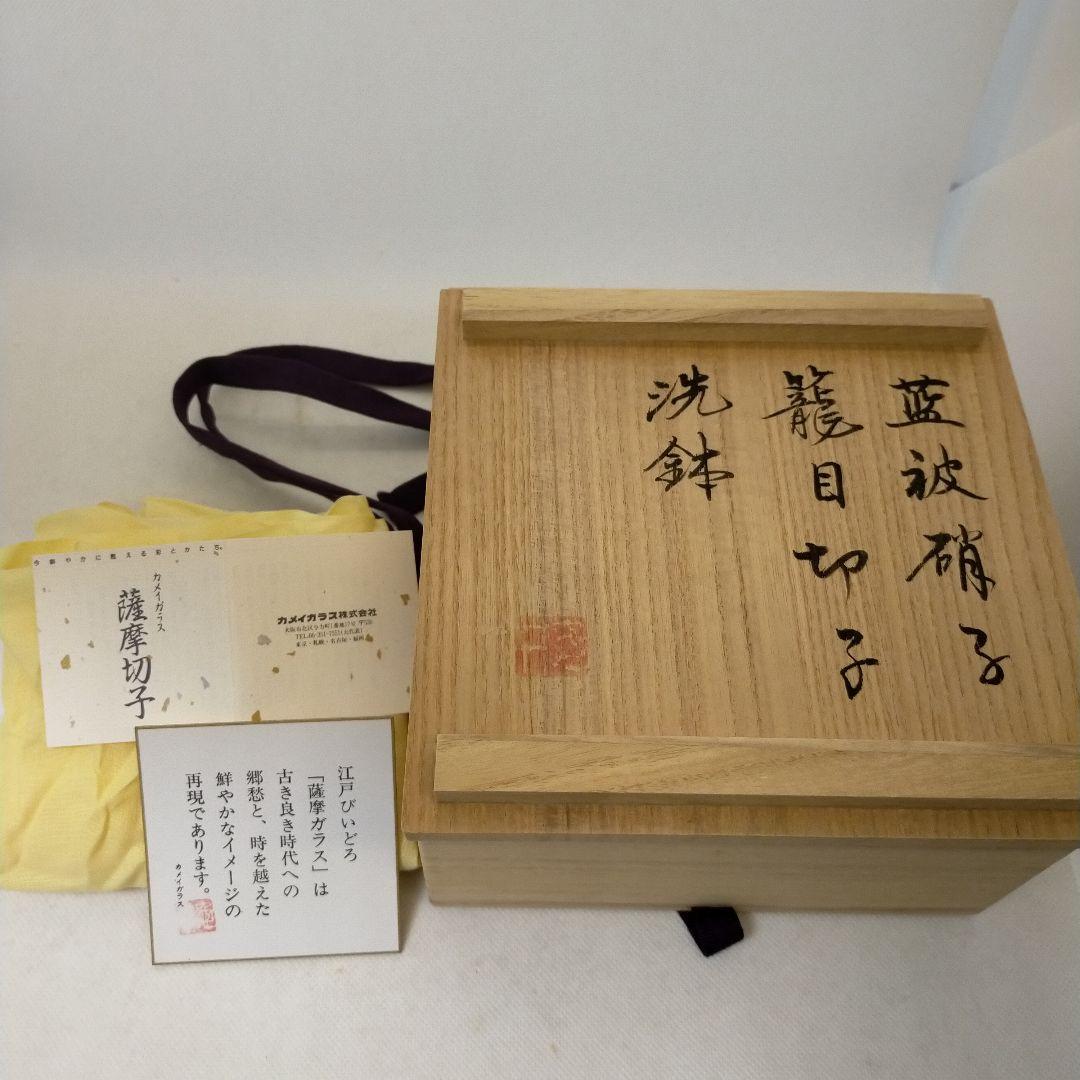 藍被硝子
籠目切子
洗鉢
今鮮やかに甦える彩とかたち。
カメイガラス
薩摩切子
カメイガラス株式会社
東京・札幌・名古屋・福岡
江戸びいどろ
「薩摩ガラス」は
古き良き時代への
郷愁と、時を越えた
鮮やかなイメージの
再現であります。
カメイガラス